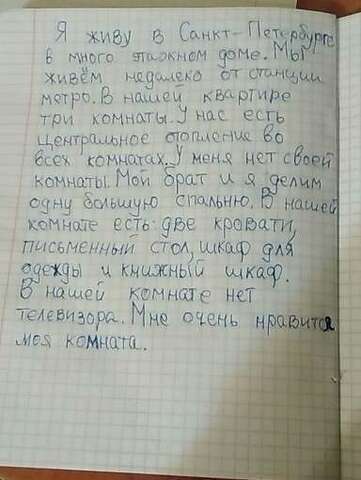 Я живу в Санкт-Петербурге
в много этажном доме. Мы
живём недалеко от станции
метро. В нашей квартире
три комнаты. У нас есть
центральное отопление во
всех комнатах. У меня нет своей
комнаты. Мой брат и я делим
одну большую спальню. В нашей
комнате есть: две кровати,
письменный стол, шкаф для
одежды и книжный шкаф.
В нашей комнате нет
телевизора. Мне очень нравится
моя комната.